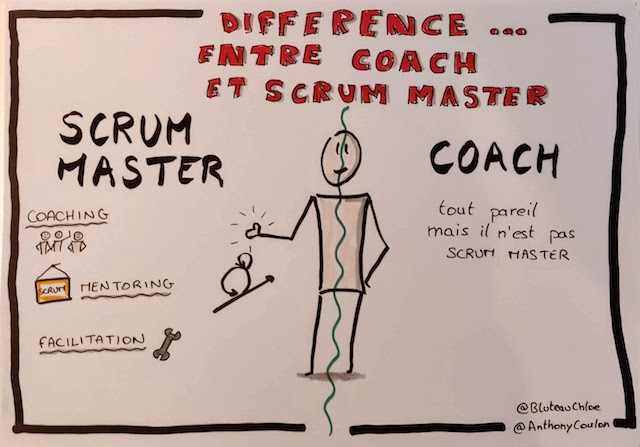 DIFFERENCE ...
ENTRE COACH
ET SCRUM MASTER
SCRUM
MASTER
COACHING
SCRUM
MENTORING
FACILITATION
COACH
tout pareil
mais il n'est pas
SCRUM MASTER
@BluteauChloe
@AnthonyCoulon